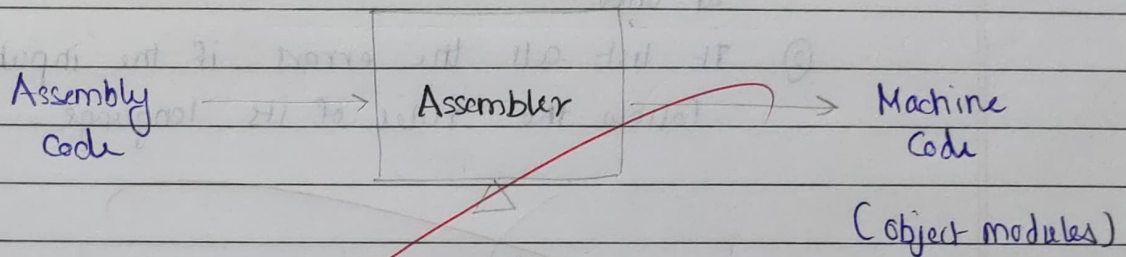 Assembly
Code
Assembler
Machine
Code
(object modules)